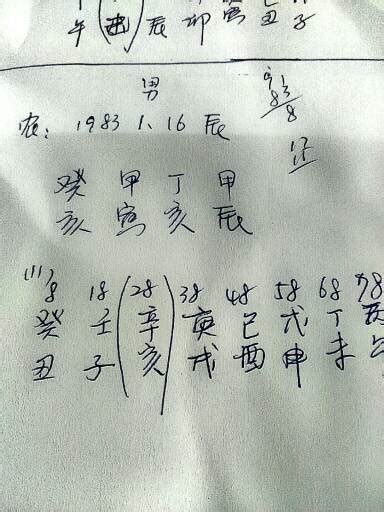 午 辰 卯 寅 丑 子
男
农: 1983 1. 16 辰
83
8
癸 甲 丁 甲
亥 寅 亥 辰
8 18 (28) 38 48 58 68 78
癸 壬 辛 庚 己 戊 丁 丙
丑 子 亥 戌 酉 申 未